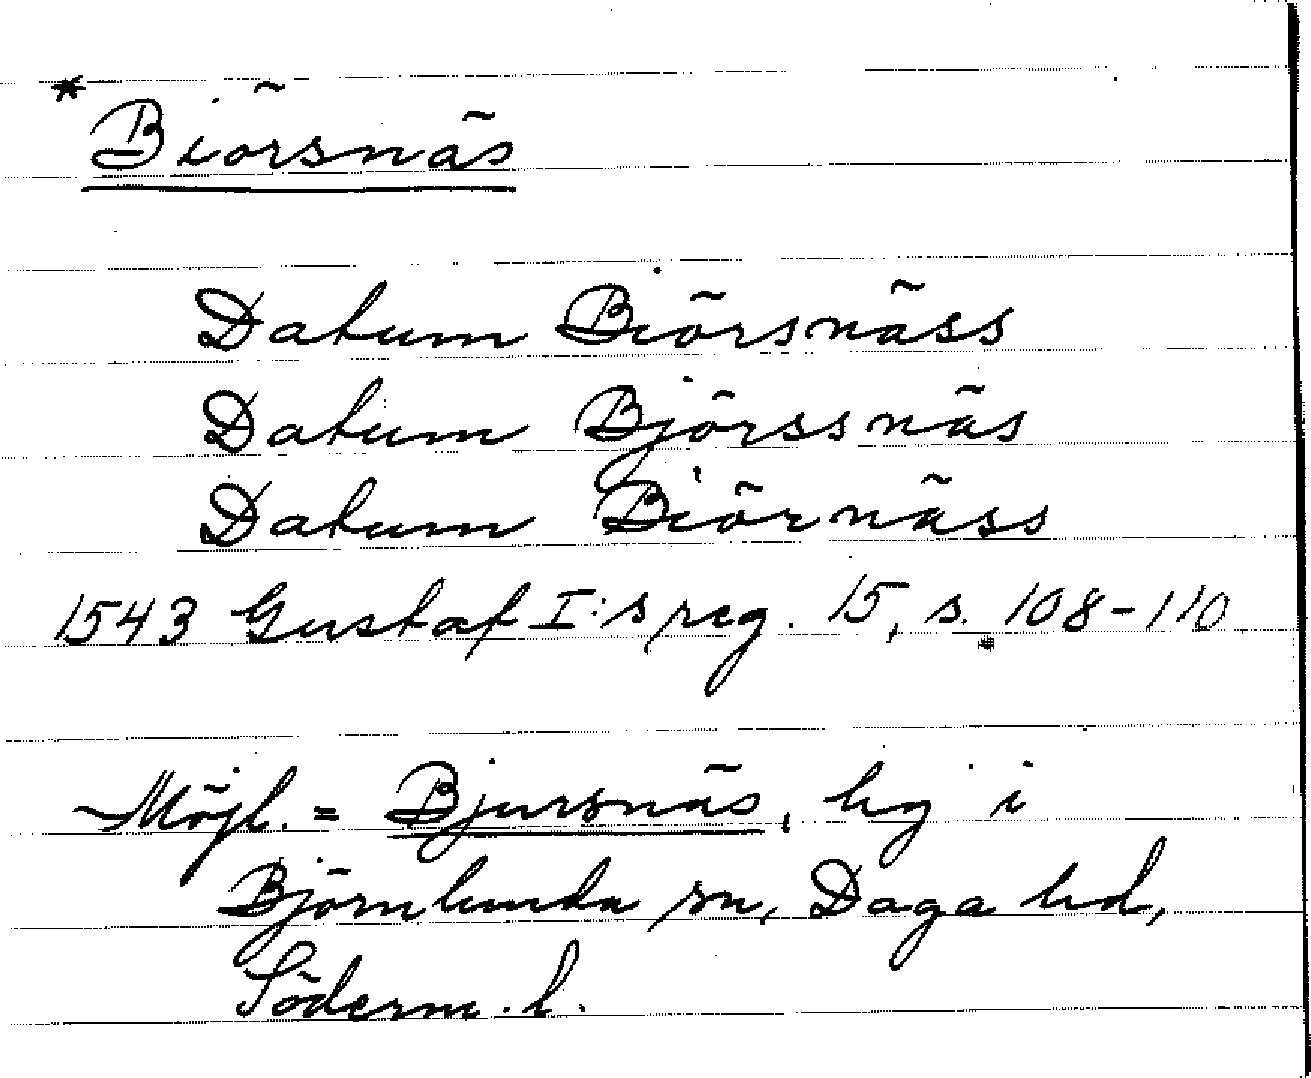 * Biörsnäs
Datum Biörsnäss
Datum Björssnäs
Datum Biörnäss
1543 Gustaf I:s reg. 15, s. 108-110
Möjl. = Bjursnäs, hg i
Björnlunda sn, Daga hd,
Söderm. l.